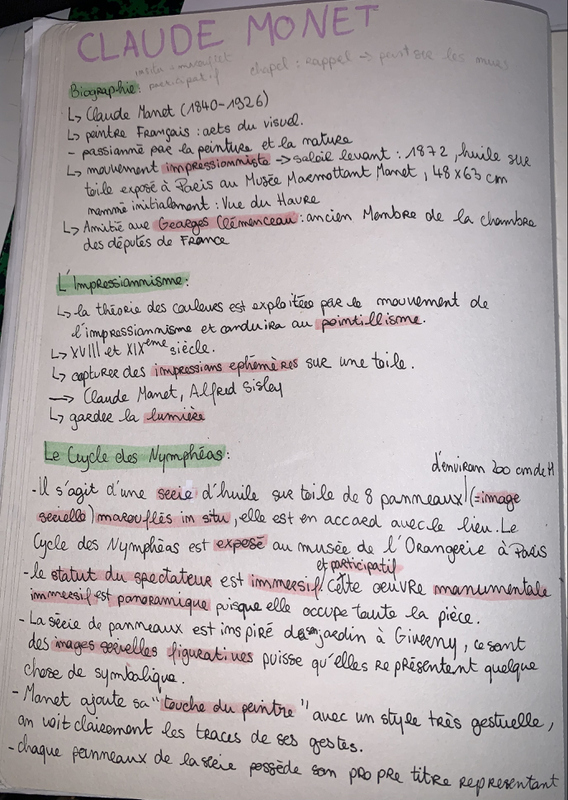 CLAUDE MONET
in situ = marouflet
participatif
chapel : rappel → peint sur les murs
Biographie:
↳ Claude Monet (1840-1926)
↳ peintre Français : arts du visuel.
- passionné par la peinture et la nature
↳ mouvement impressionniste → soleil levant : 1872, huile sur
toile exposé à Paris au Musée Marmottant Monet, 48x63 cm
nommé initialement : Vue du Havre
↳ Amitié avec Georges Clémenceau : ancien Membre de la chambre
des députés de France
L'Impressionnisme:
↳ la théorie des couleurs est exploitée par le mouvement de
l'impressionnisme et conduira au pointillisme.
↳ XVIII et XIXème siècle.
↳ capturer des impressions ephémères sur une toile.
→ Claude Monet, Alfred Sisley
↳ garder la lumière
Le Cycle des Nymphéas:
d'environ 200 cm de H
- Il s'agit d'une serie d'huile sur toile de 8 panneaux (=image
serielle) marouflés in situ, elle est en accord avec le lieu. Le
Cycle des Nymphéas est exposé au musée de l'Orangerie à Paris
et participatif
- le statut du spectateur est immersif. Cette oeuvre monumentale
immersif est panoramique puisque elle occupe toute la pièce.
- La série de panneaux est inspiré de son jardin à Giverny, ce sont
des images sérielles figuratives puisse qu'elles représentent quelque
chose de symbolique.
- Monet ajoute sa "touche du peintre" avec un style très gestuelle,
on voit clairement les traces de ses gestes.
- chaque panneaux de la série possède son propre titre representant